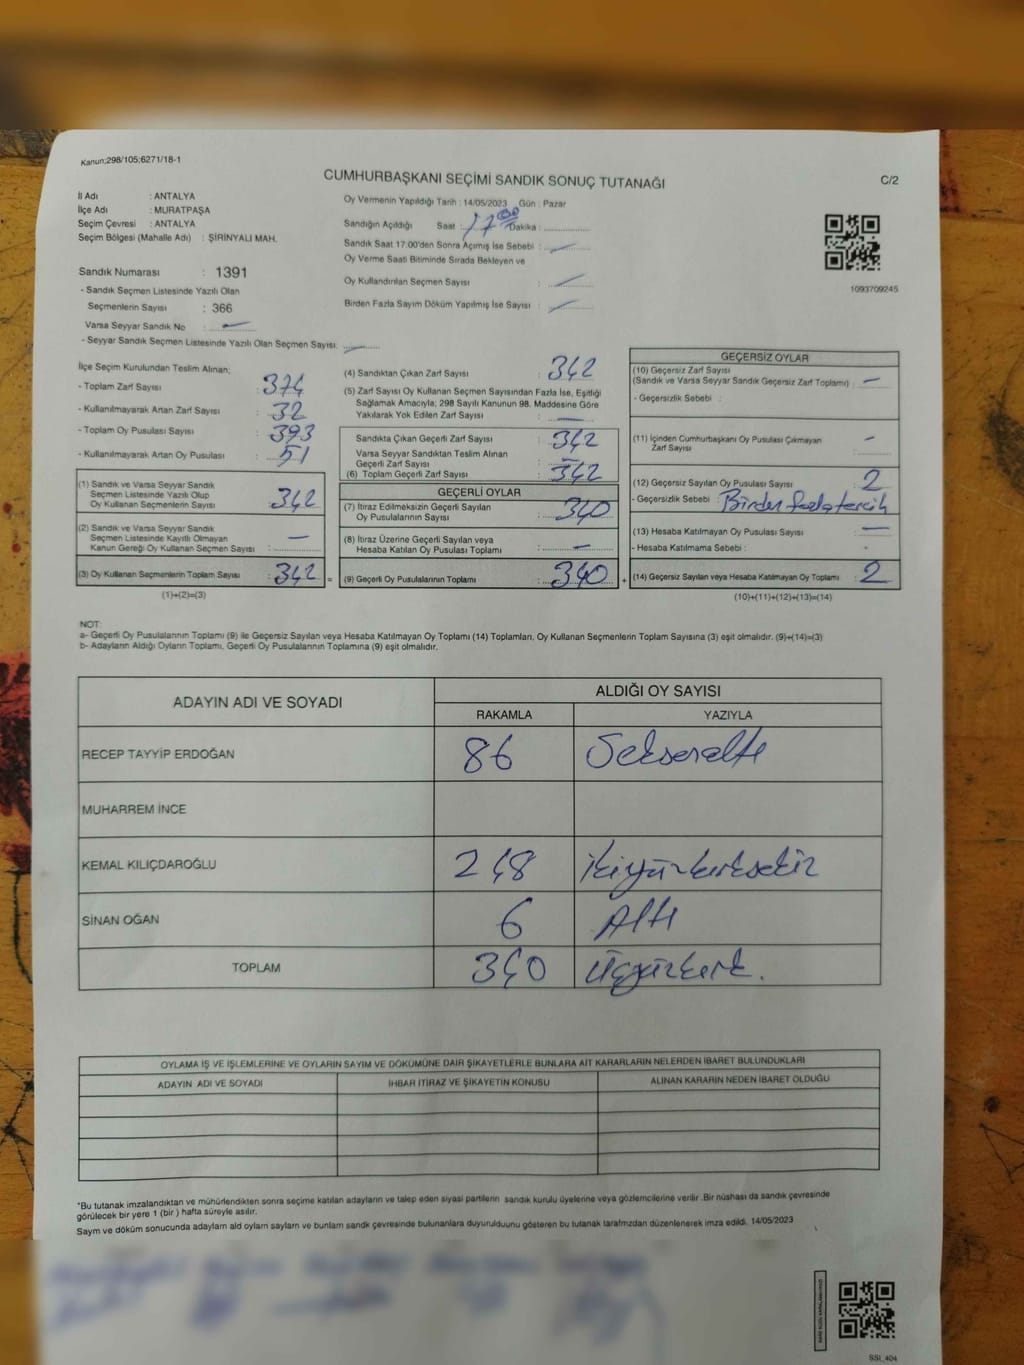 Kanun;298/105;6271/18-1
CUMHURBAŞKANI SEÇİMİ SANDIK SONUÇ TUTANAĞI
C/2
İl Adı : ANTALYA
İlçe Adı : MURATPAŞA
Seçim Çevresi : ANTALYA
Seçim Bölgesi (Mahalle Adı) : ŞİRİNYALI MAH.
Sandık Numarası : 1391
- Sandık Seçmen Listesinde Yazılı Olan
Seçmenlerin Sayısı : 366
Varsa Seyyar Sandık No : —
- Seyyar Sandık Seçmen Listesinde Yazılı Olan Seçmen Sayısı: —
Oy Vermenin Yapıldığı Tarih : 14/05/2023 Gün : Pazar
Sandığın Açıldığı Saat : 17 00 Dakika :
Sandık Saat 17:00'den Sonra Açımış İse Sebebi : —
Oy Verme Saati Bitiminde Sırada Bekleyen ve
Oy Kullandırılan Seçmen Sayısı : —
Birden Fazla Sayım Döküm Yapılmış İse Sayısı : —
1093709245
İlçe Seçim Kurulundan Teslim Alınan;
- Toplam Zarf Sayısı : 374
- Kullanılmayarak Artan Zarf Sayısı : 32
- Toplam Oy Pusulası Sayısı : 393
- Kullanılmayarak Artan Oy Pusulası : 51
(1) Sandık ve Varsa Seyyar Sandık
Seçmen Listesinde Yazılı Olup
Oy Kullanan Seçmenlerin Sayısı : 342
(2) Sandık ve Varsa Seyyar Sandık
Seçmen Listesinde Kayıtlı Olmayan
Kanun Gereği Oy Kullanan Seçmen Sayısı : —
(3) Oy Kullanan Seçmenlerin Toplam Sayısı : 342 =
(1)+(2)=(3)
(4) Sandıktan Çıkan Zarf Sayısı : 342
(5) Zarf Sayısı Oy Kullanan Seçmen Sayısından Fazla İse, Eşitliği
Sağlamak Amacıyla; 298 Sayılı Kanunun 98. Maddesine Göre
Yakılarak Yok Edilen Zarf Sayısı : —
Sandıkta Çıkan Geçerli Zarf Sayısı : 342
Varsa Seyyar Sandıktan Teslim Alınan
Geçerli Zarf Sayısı : —
(6) Toplam Geçerli Zarf Sayısı : 342
GEÇERLİ OYLAR
(7) İtiraz Edilmeksizin Geçerli Sayılan
Oy Pusulalarının Sayısı : 340
(8) İtiraz Üzerine Geçerli Sayılan veya
Hesaba Katılan Oy Pusulası Toplamı : —
(9) Geçerli Oy Pusulalarının Toplamı : 340 +
GEÇERSİZ OYLAR
(10) Geçersiz Zarf Sayısı
(Sandık ve Varsa Seyyar Sandık Geçersiz Zarf Toplamı) : —
- Geçersizlik Sebebi :
(11) İçinden Cumhurbaşkanı Oy Pusulası Çıkmayan
Zarf Sayısı : —
(12) Geçersiz Sayılan Oy Pusulası Sayısı : 2
- Geçersizlik Sebebi : Birden fazla tercih
(13) Hesaba Katılmayan Oy Pusulası Sayısı : —
- Hesaba Katılmama Sebebi :
(14) Geçersiz Sayılan veya Hesaba Katılmayan Oy Toplamı : 2
(10)+(11)+(12)+(13)=(14)
NOT:
a- Geçerli Oy Pusulalarının Toplamı (9) ile Geçersiz Sayılan veya Hesaba Katılmayan Oy Toplamı (14) Toplamları, Oy Kullanan Seçmenlerin Toplam Sayısına (3) eşit olmalıdır. (9)+(14)=(3)
b- Adayların Aldığı Oyların Toplamı, Geçerli Oy Pusulalarının Toplamına (9) eşit olmalıdır.
ADAYIN ADI VE SOYADI
ALDIĞI OY SAYISI
RAKAMLA YAZIYLA
RECEP TAYYİP ERDOĞAN 86 Seksenaltı
MUHARREM İNCE
KEMAL KILIÇDAROĞLU 248 İkiyüzkırksekiz
SİNAN OĞAN 6 Altı
TOPLAM 340 Üçyüzkırk.
OYLAMA İŞ VE İŞLEMLERİNE VE OYLARIN SAYIM VE DÖKÜMÜNE DAİR ŞİKAYETLERLE BUNLARA AİT KARARLARIN NELERDEN İBARET BULUNDUKLARI
ADAYIN ADI VE SOYADI İHBAR İTİRAZ VE ŞİKAYETİN KONUSU ALINAN KARARIN NEDEN İBARET OLDUĞU
*Bu tutanak imzalandıktan ve mühürlendikten sonra seçime katılan adayların ve talep eden siyasi partilerin sandık kurulu üyelerine veya gözlemcilerine verilir .Bir nüshası da sandık çevresinde
görülecek bir yere 1 (bir ) hafta süreyle asılır.
Sayım ve döküm sonucunda adayların ald oyların sayların ve bunların sandk çevresinde bulunanlara duyurulduunu gösteren bu tutanak tarafmzdan düzenlenerek imza edildi. 14/05/2023
SSI_404